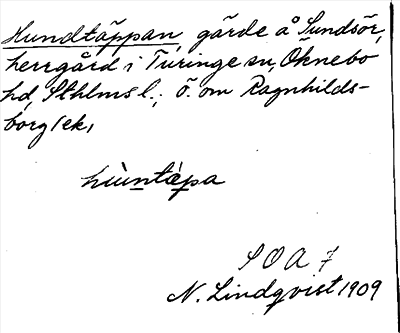 Hundtäppan, gärde å Sundsör,
herrgård i Turinge sn, Oknebo
hd, Sthlms l.; ö. om Ragnhilds-
borg (ek,
hùntɛ̀pa
S O A 7
N. Lindqvist 1909